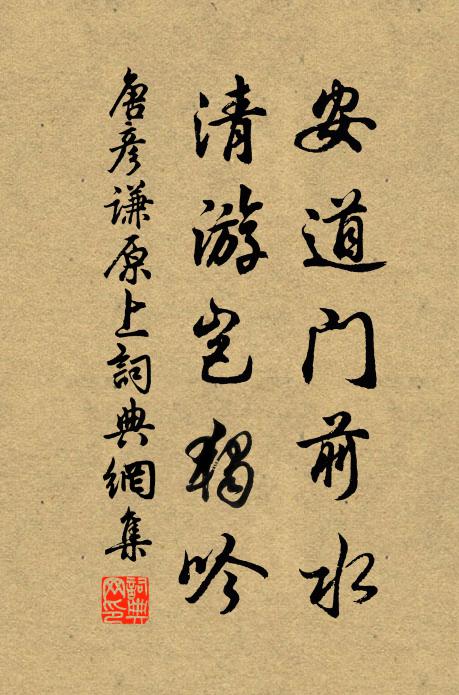 安道门前水
清游岂独吟
唐彦谦原上詞典網集
詞典網印